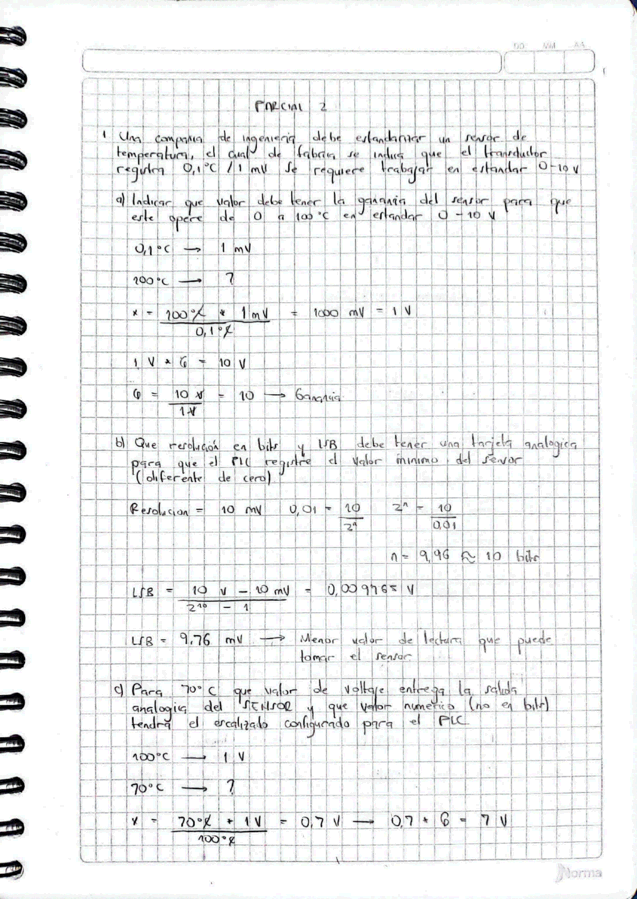 DD MM AA
PARCIAL 2
1 Una compañia de ingenieria debe estandarizar un sensor de
temperatura, el cual de fabrica se indica que el transductor
registra 0,1°C / 1 mV se requiere trabajar en estandar 0-10 V
a) Indicar que valor debe tener la ganancia del sensor para que
este opere de 0 a 100°C en estandar 0-10 V
0,1°C → 1 mV
100°C → ?
x = 100°C * 1 mV / 0,1°C = 1000 mV = 1 V
1 V * G = 10 V
G = 10 V / 1 V = 10 → Ganancia
b) Que resolución en bits y LSB debe tener una tarjeta analogica
para que el PLC registre el valor minimo del sensor
(diferente de cero)
Resolucion = 10 mV 0,01 = 10 / 2^n 2^n = 10 / 0,01
n = 9,96 ≈ 10 bits
LSB = 10 V - 10 mV / 2^10 - 1 = 0,009765 V
LSB = 9,76 mV → Menor valor de lectura que puede
tomar el sensor
c) Para 70°C que valor de voltaje entrega la salida
analogia del SENSOR y que valor numerico (no en bits)
tendrá el escalizalo configurado para el PLC
100°C → 1 V
70°C → ?
x = 70°C * 1 V / 100°C = 0,7 V → 0,7 * G = 7 V
Norma